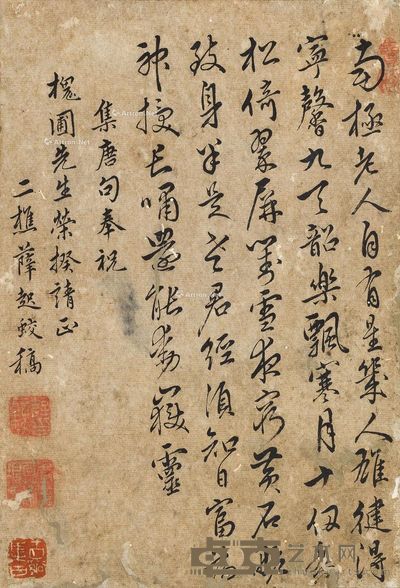 南極老人自有星幾人雄健得
寧馨九天韶樂飄寒月十仞
松倚翠屏對雪夜窮黃石略
致身半是老君經須知日富爲
神授長嘯還能動嶽靈
集唐句奉祝
槐圃先生榮揆請正
二樵薛起蛟稿